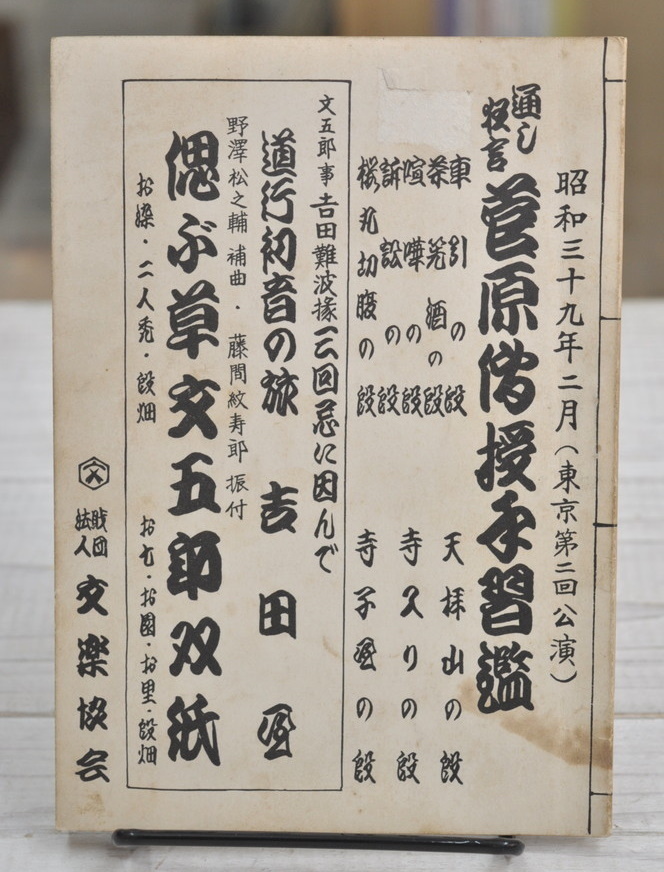 昭和三十九年二月（東京第二回公演）
通し狂言
菅原伝授手習鑑
車引の段
茶筅酒の段
喧嘩の段
訴訟の段
桜丸切腹の段
天拝山の段
寺入りの段
寺子屋の段
文五郎事吉田難波掾三回忌に因んで
道行初音の旅 吉田屋
野澤松之輔 補曲・藤間紋寿郎 振付
偲ぶ草文五郎双紙
お染・二人禿・段畑
お七・お園・お里・段畑
財団法人 文楽協会